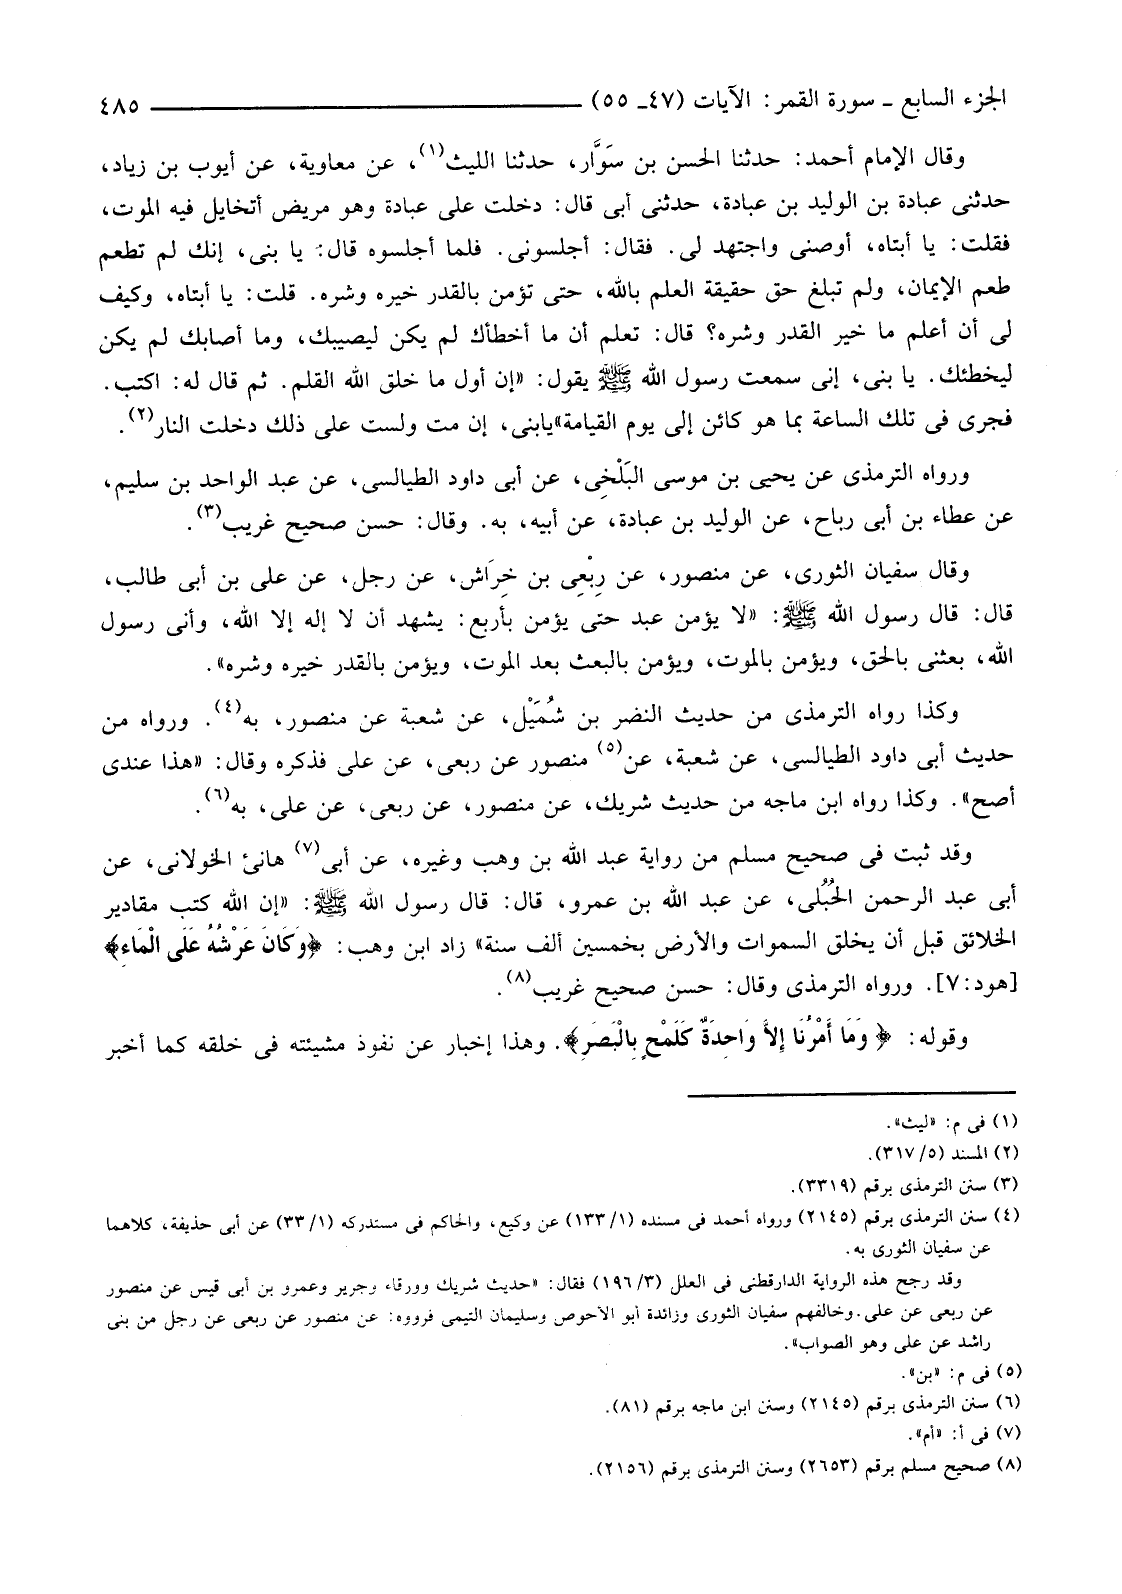 الجزء السابع ـ سورة القمر : الآيات (٤٧ـ ٥٥) ٤٨٥
وقال الإمام أحمد: حدثنا الحسن بن سَوَّار، حدثنا الليث(١)، عن معاوية، عن أيوب بن زياد،
حدثنى عبادة بن الوليد بن عبادة، حدثنى أبى قال: دخلت على عبادة وهو مريض أتخايل فيه الموت،
فقلت: يا أبتاه، أوصنى واجتهد لى. فقال: أجلسونى. فلما أجلسوه قال: يا بنى، إنك لم تطعم
طعم الإيمان، ولم تبلغ حق حقيقة العلم بالله، حتى تؤمن بالقدر خيره وشره. قلت: يا أبتاه، وكيف
لى أن أعلم ما خير القدر وشره؟ قال: تعلم أن ما أخطأك لم يكن ليصيبك، وما أصابك لم يكن
ليخطئك. يا بنى، إنى سمعت رسول الله ﷺ يقول: «إن أول ما خلق الله القلم. ثم قال له: اكتب.
فجرى فى تلك الساعة بما هو كائن إلى يوم القيامة»يابنى، إن مت ولست على ذلك دخلت النار(٢).
ورواه الترمذى عن يحيى بن موسى البَلْخِى، عن أبى داود الطيالسى، عن عبد الواحد بن سليم،
عن عطاء بن أبى رباح، عن الوليد بن عبادة، عن أبيه، به. وقال: حسن صحيح غريب(٣).
وقال سفيان الثورى، عن منصور، عن رِبْعِى بن خِرَاش، عن رجل، عن على بن أبى طالب،
قال: قال رسول الله ﷺ: «لا يؤمن عبد حتى يؤمن بأربع: يشهد أن لا إله إلا الله، وأنى رسول
الله، بعثنى بالحق، ويؤمن بالموت، ويؤمن بالبعث بعد الموت، ويؤمن بالقدر خيره وشره».
وكذا رواه الترمذى من حديث النضر بن شُمَيْل، عن شعبة عن منصور، به(٤). ورواه من
حديث أبى داود الطيالسى، عن شعبة، عن(٥) منصور عن ربعى، عن على فذكره وقال: «هذا عندى
أصح». وكذا رواه ابن ماجه من حديث شريك، عن منصور، عن ربعى، عن على، به(٦).
وقد ثبت فى صحيح مسلم من رواية عبد الله بن وهب وغيره، عن أبى(٧) هانئ الخولانى، عن
أبى عبد الرحمن الحُبُلى، عن عبد الله بن عمرو، قال: قال رسول الله ﷺ: «إن الله كتب مقادير
الخلائق قبل أن يخلق السموات والأرض بخمسين ألف سنة» زاد ابن وهب: ﴿وَكَانَ عَرْشُهُ عَلَى الْمَاءِ﴾
[هود:٧]. ورواه الترمذى وقال: حسن صحيح غريب(٨).
وقوله: ﴿ وَمَا أَمْرُنَا إِلاَّ وَاحِدَةٌ كَلَمْحٍ بِالْبَصَرِ﴾. وهذا إخبار عن نفوذ مشيئته فى خلقه كما أخبر
(١) فى م: «ليث».
(٢) المسند (٥/ ٣١٧).
(٣) سنن الترمذى برقم (٣٣١٩).
(٤) سنن الترمذى برقم (٢١٤٥) ورواه أحمد فى مسنده (١/ ١٣٣) عن وكيع، والحاكم فى مستدركه (١/ ٣٣) عن أبى حذيفة، كلاهما
عن سفيان الثورى به.
وقد رجح هذه الرواية الدارقطنى فى العلل (٣/ ١٩٦) فقال: «حديث شريك وورقاء وجرير وعمرو بن أبى قيس عن منصور
عن ربعى عن على. وخالفهم سفيان الثورى وزائدة أبو الأحوص وسليمان التيمى فرووه: عن منصور عن ربعى عن رجل من بنى
راشد عن على وهو الصواب».
(٥) فى م: «بن».
(٦) سنن الترمذى برقم (٢١٤٥) وسنن ابن ماجه برقم (٨١).
(٧) فى أ: «أم».
(٨) صحيح مسلم برقم (٢٦٥٣) وسنن الترمذى برقم (٢١٥٦).